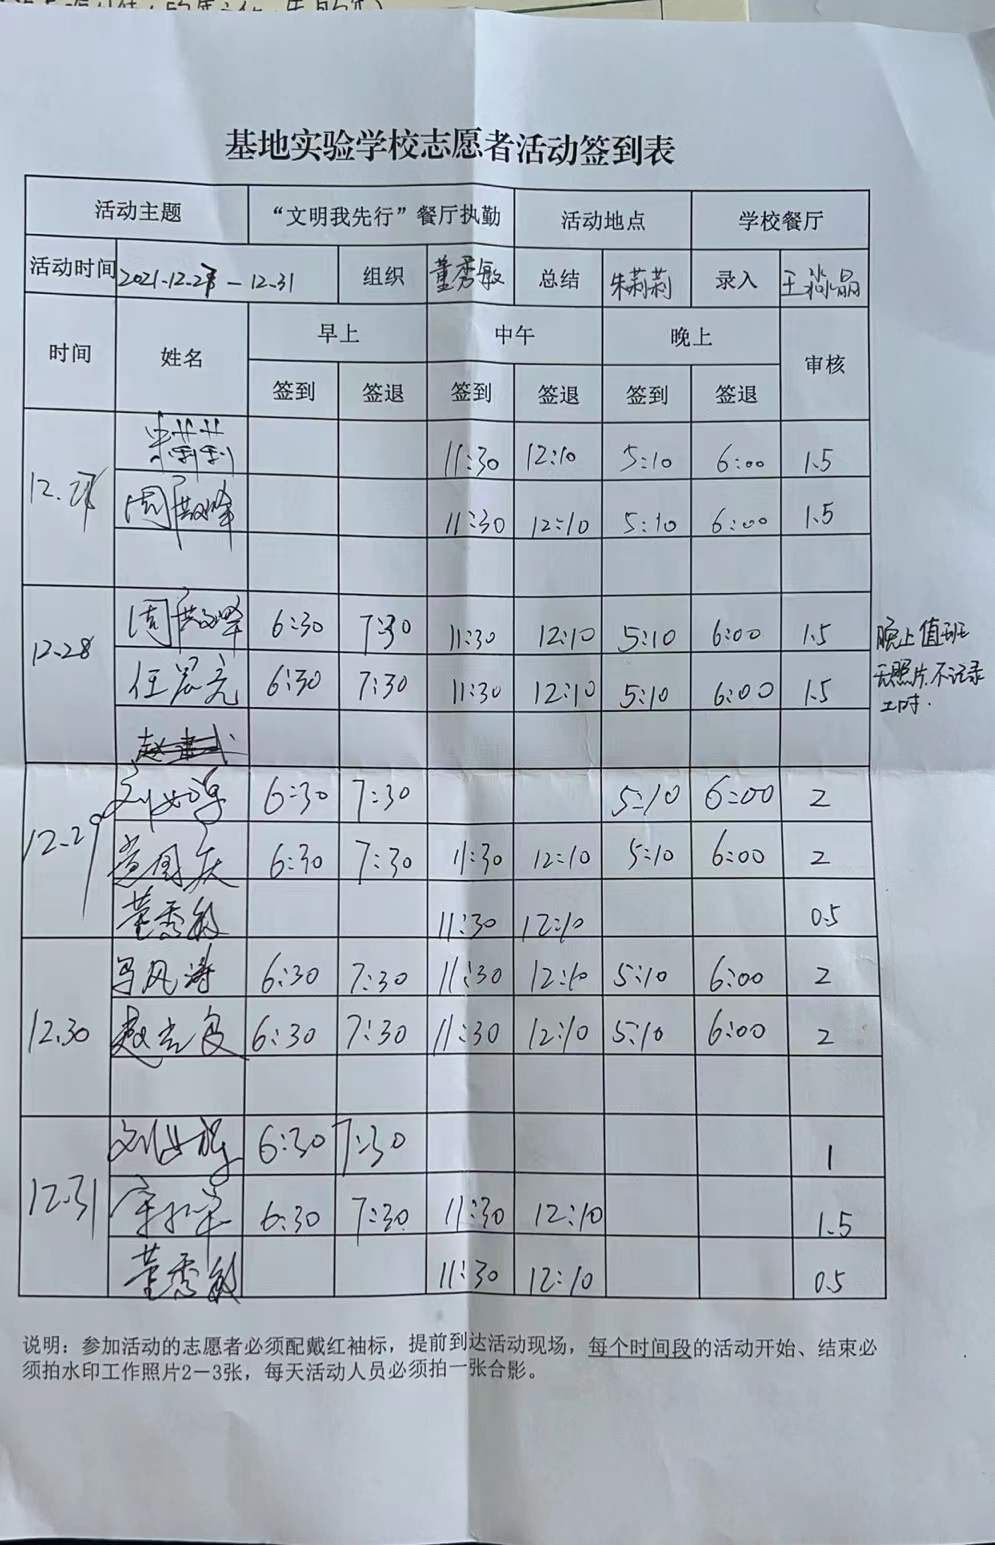 基地实验学校志愿者活动签到表
活动主题 “文明我先行”餐厅执勤 活动地点 学校餐厅
活动时间 2021.12.27 — 12.31 组织 董秀敏 总结 朱莉莉 录入 王淑晶
时间 姓名 早上 中午 晚上 审核
签到 签退 签到 签退 签到 签退
12.27 朱莉莉 11:30 12:10 5:10 6:00 1.5
周 峰 11:30 12:10 5:10 6:00 1.5
12.28 周 峰 6:30 7:30 11:30 12:10 5:10 6:00 1.5
任 亮 6:30 7:30 11:30 12:10 5:10 6:00 1.5
晚上值班
无照片.不记录
工时.
赵
12.29 刘 6:30 7:30 5:10 6:00 2
国庆 6:30 7:30 11:30 12:10 5:10 6:00 2
董秀敏 11:30 12:10 0.5
12.30 马风涛 6:30 7:30 11:30 12:10 5:10 6:00 2
赵 6:30 7:30 11:30 12:10 5:10 6:00 2
12.31 刘 6:30 7:30 1
6:30 7:30 11:30 12:10 1.5
董秀敏 11:30 12:10 0.5
说明：参加活动的志愿者必须配戴红袖标，提前到达活动现场，每个时间段的活动开始、结束必
须拍水印工作照片2－3张，每天活动人员必须拍一张合影。